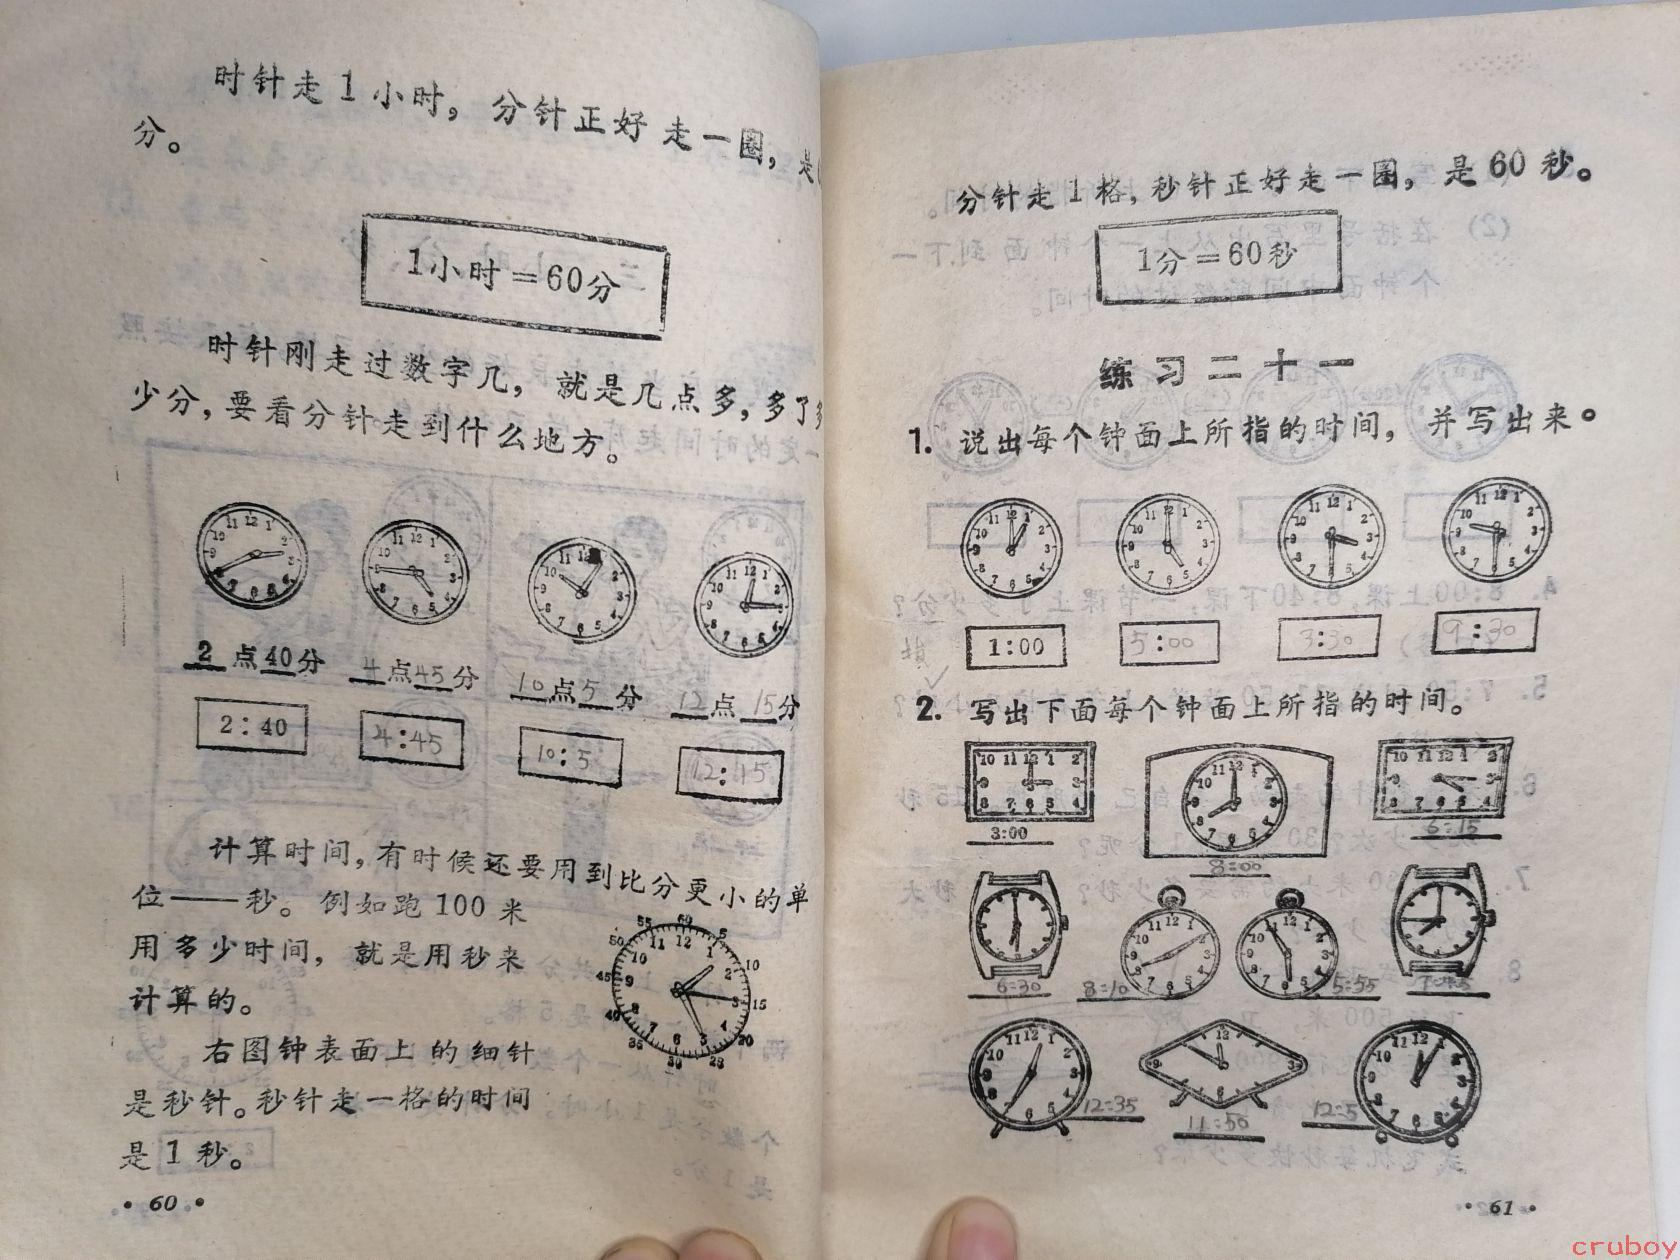 时针走1小时，分针正好走一圈，是
分。
1小时＝60分
时针刚走过数字几，就是几点多，多了多
少分，要看分针走到什么地方。
2点40分 4点45分 10点5分 12点15分
2:40 4:45 10:5 12:15
计算时间，有时候还要用到比分更小的单
位——秒。例如跑100米
用多少时间，就是用秒来
计算的。
右图钟表面上的细针
是秒针。秒针走一格的时间
是1秒。
·60·
分针走1格，秒针正好走一圈，是60秒。
1分＝60秒
练习二十一
1. 说出每个钟面上所指的时间，并写出来。
1:00 5:00 3:30 9:30
2. 写出下面每个钟面上所指的时间。
3:00 8:00 6:15
6:30 8:10 5:55 7:45
12:35 11:50 12:5
·61·
cruboy